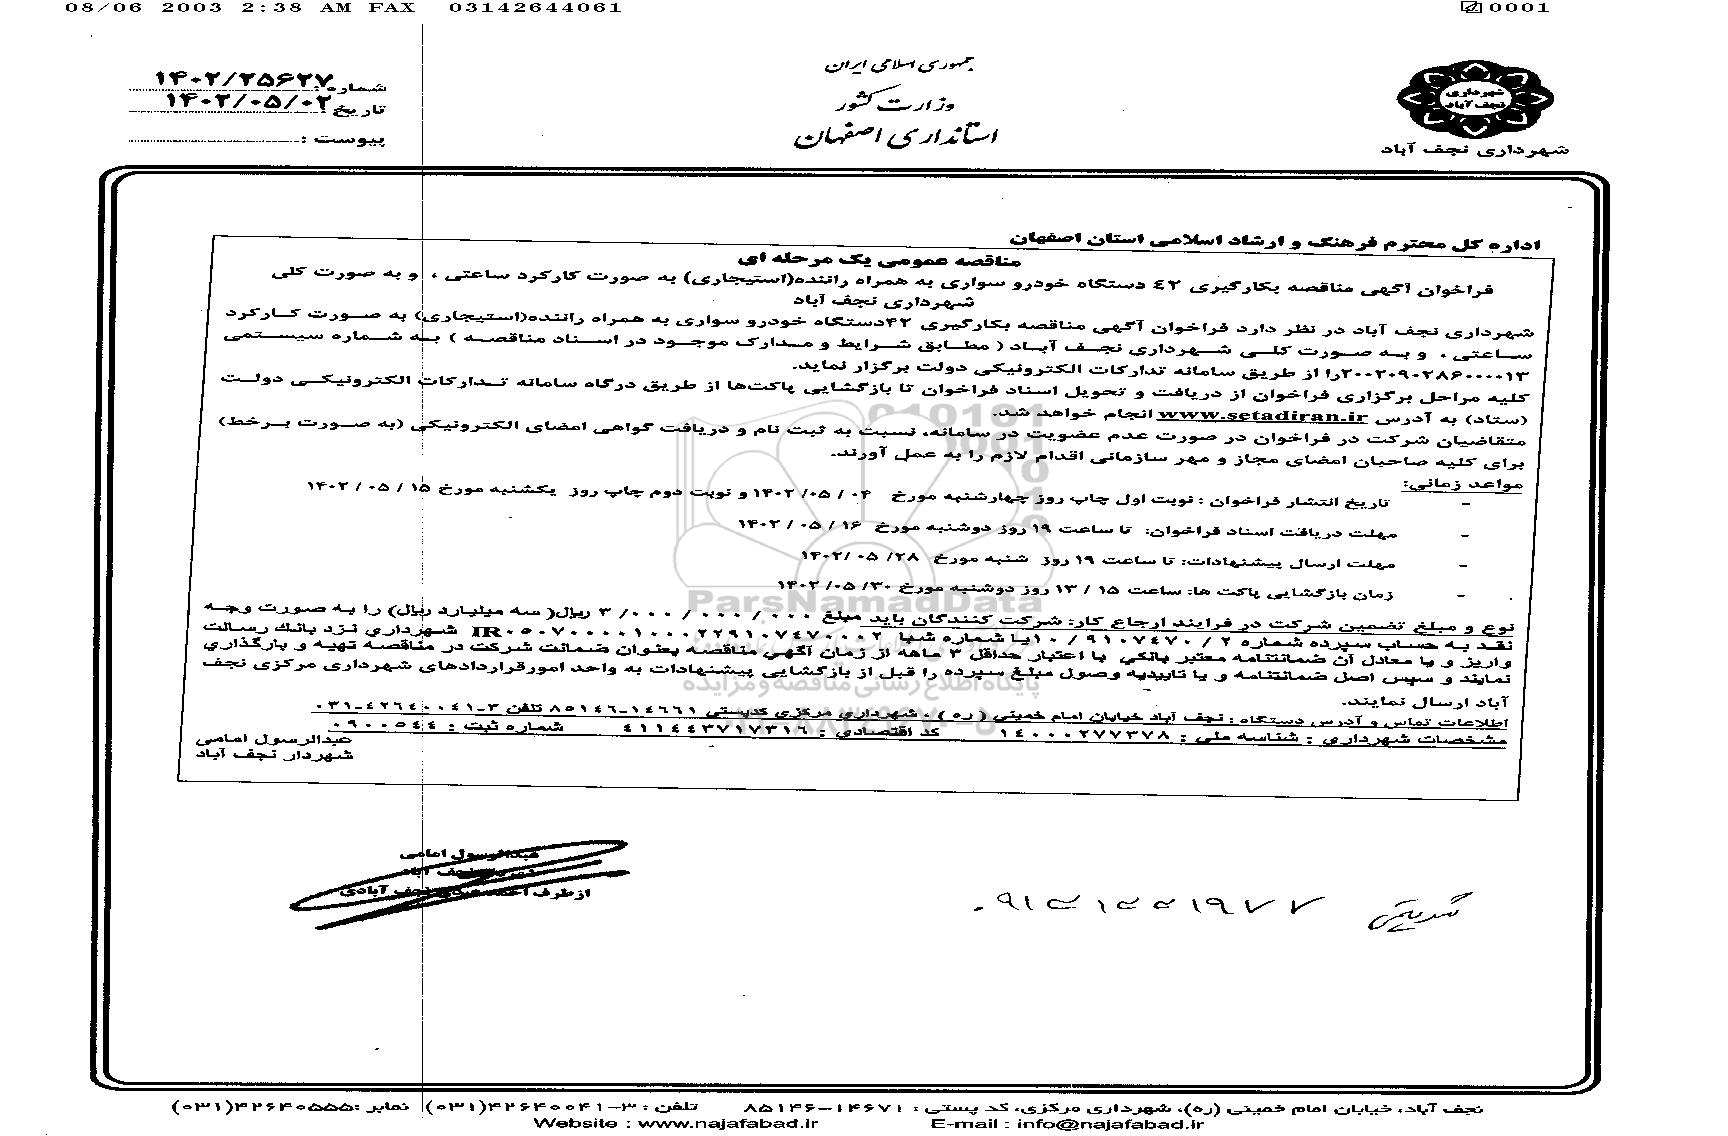 08/06 2003 2:38 AM FAX 03142644061 0001
جمهوری اسلامی ایران
وزارت کشور
استانداری اصفهان
شهرداری نجف آباد
شهرداری نجف آباد
شماره: ۱۴۰۲/۲۵۶۲۷
تاریخ: ۱۴۰۲/۰۵/۰۲
پیوست :
اداره کل محترم فرهنگ و ارشاد اسلامی استان اصفهان
مناقصه عمومی یک مرحله ای
فراخوان آگهی مناقصه بکارگیری ٤٢ دستگاه خودرو سواری به همراه راننده(استیجاری) به صورت کارکرد ساعتی ، و به صورت کلی
شهرداری نجف آباد
شهرداری نجف آباد در نظر دارد فراخوان آگهی مناقصه بکارگیری ۴۲دستگاه خودرو سواری به همراه راننده(استیجاری) به صورت کارکرد
ساعتی ، و به صورت کلی شهرداری نجف آباد ( مطابق شرایط و مدارک موجود در اسناد مناقصه ) به شماره سیستمی
۲۰۰۲۰۹۰۲۸۶۰۰۰۰۱۳را از طریق سامانه تدارکات الکترونیکی دولت برگزار نماید.
کلیه مراحل برگزاری فراخوان از دریافت و تحویل اسناد فراخوان تا بازگشایی پاکت‌ها از طریق درگاه سامانه تدارکات الکترونیکی دولت
(ستاد) به آدرس www.setadiran.ir انجام خواهد شد.
متقاضیان شرکت در فراخوان در صورت عدم عضویت در سامانه، نسبت به ثبت نام و دریافت گواهی امضای الکترونیکی (به صورت برخط)
برای کلیه صاحبان امضای مجاز و مهر سازمانی اقدام لازم را به عمل آورند.
مواعد زمانی:
- تاریخ انتشار فراخوان : نوبت اول چاپ روز چهارشنبه مورخ ۰۴ / ۰۵ /۱۴۰۲ و نوبت دوم چاپ روز یکشنبه مورخ ۱۵ / ۰۵ / ۱۴۰۲
- مهلت دریافت اسناد فراخوان: تا ساعت ۱۹ روز دوشنبه مورخ ۱۶ / ۰۵ / ۱۴۰۲
- مهلت ارسال پیشنهادات: تا ساعت ۱۹ روز شنبه مورخ ۲۸ / ۰۵ /۱۴۰۲
- زمان بازگشایی پاکت ها: ساعت ۱۵ / ۱۳ روز دوشنبه مورخ ۳۰ / ۰۵ /۱۴۰۲
ParsNamadData
نوع و مبلغ تضمین شرکت در فرایند ارجاع کار: شرکت کنندگان باید مبلغ ۰۰۰/ ۰۰۰ / ۰۰۰/ ۳ ریال( سه میلیارد ریال) را به صورت وجه
نقد به حساب سپرده شماره ۲ / ۹۱۰۷۴۷۰ / ۱۰یا شماره شبا IR۰۵۰۷۰۰۰۰۱۰۰۰۲۲۹۱۰۷۴۷۰۰۰۲ شهرداری نزد بانک رسالت
واریز و یا معادل آن ضمانتنامه معتبر بانکی با اعتبار حداقل ۳ ماهه از زمان آگهی مناقصه بعنوان ضمانت شرکت در مناقصه تهیه و بارگذاری
نمایند و سپس اصل ضمانتنامه و یا تاییدیه وصول مبلغ سپرده را قبل از بازگشایی پیشنهادات به واحد امورقراردادهای شهرداری مرکزی نجف
پایگاه اطلاع رسانی مناقصه و مزایده
آباد ارسال نمایند.
اطلاعات تماس و آدرس دستگاه : نجف آباد خیابان امام خمینی ( ره ) ، شهرداری مرکزی کدپستی ۱۴۶۶۱-۸۵۱۴۶ تلفن ۳-۰۳۱-۴۲۶۴۰۰۴۱
مشخصات شهرداری : شناسه ملی : ۱۴۰۰۰۲۷۷۳۷۸ کد اقتصادی : ۴۱۱۴۴۳۷۱۷۳۱۶ شماره ثبت : ۰۹۰۰۵۴۴
عبدالرسول امامی
شهردار نجف آباد
عبدالرسول امامی
شهردار نجف آباد
از طرف
نجف آبادی
نجف آباد، خیابان امام خمینی (ره)، شهرداری مرکزی، کد پستی : ۱۴۶۷۱-۸۵۱۴۶ تلفن : ۳-۴۲۶۴۰۰۴۱(۰۳۱) نمابر :۴۲۶۴۰۵۵۵(۰۳۱)
Website : www.najafabad.ir E-mail : info@najafabad.ir